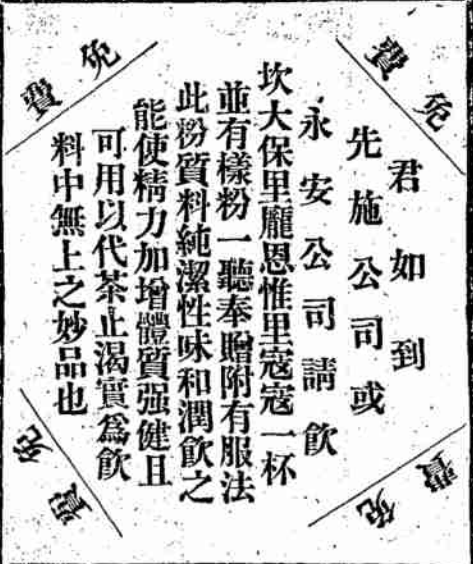 免費
免費
君如到
先施公司或
永安公司請飲
坎大保里龎恩惟里寇寇一杯
並有樣粉一聽奉贈附有服法
此粉質料純潔性味和潤飲之
能使精力加增體質强健且
可用以代茶止渴實爲飲
料中無上之妙品也
免費
免費